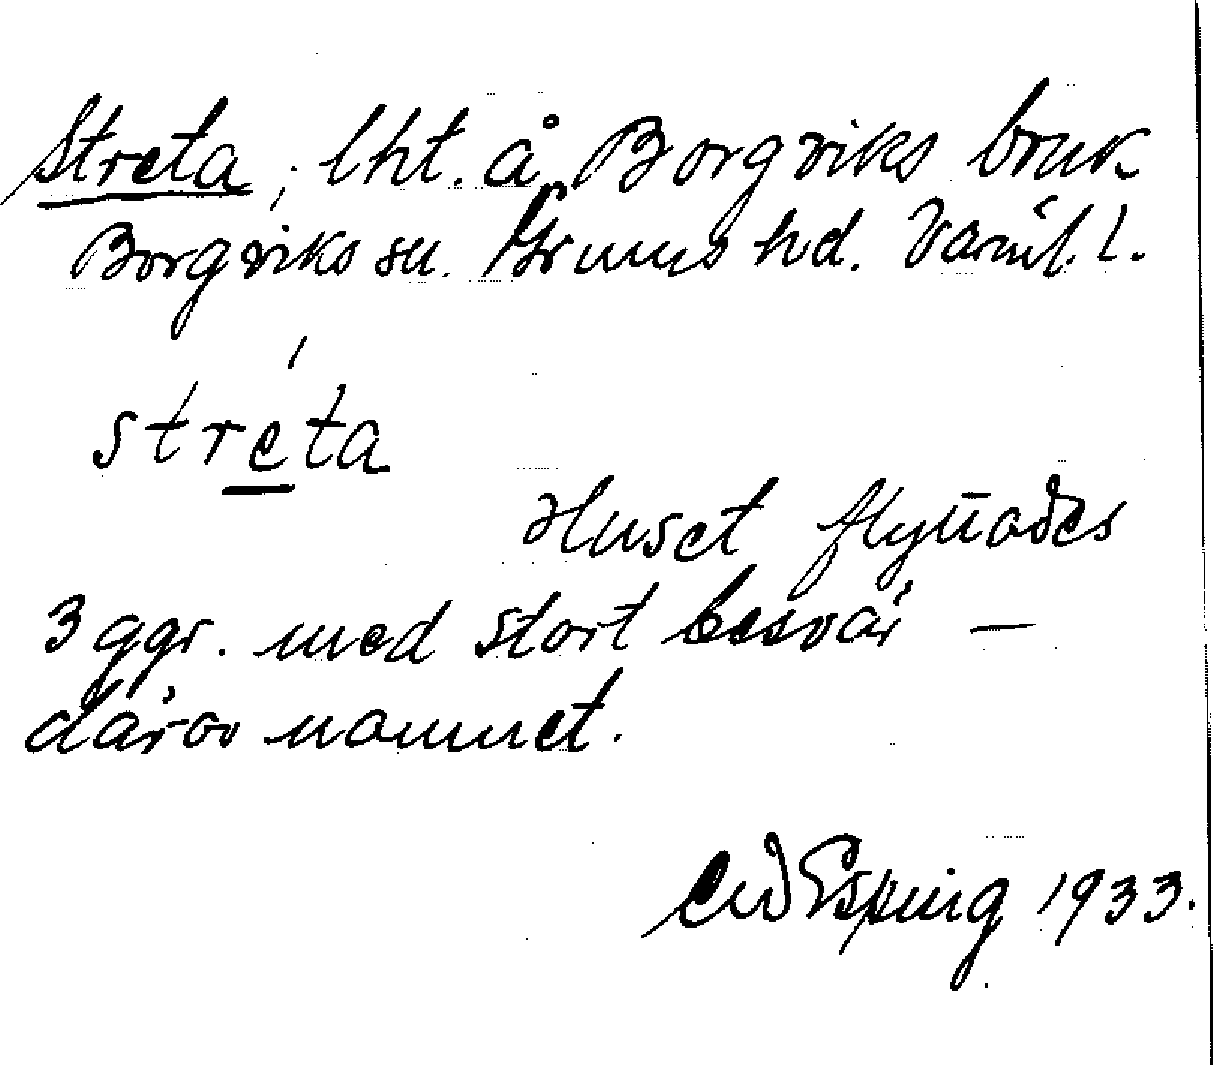 Streta, lht. å Borgviks bruk
Borgviks sn. Grums hd. Värml. l.
stréta
Huset flyttades
3 ggr. med stort besvär —
därav namnet.
Esping 1933.